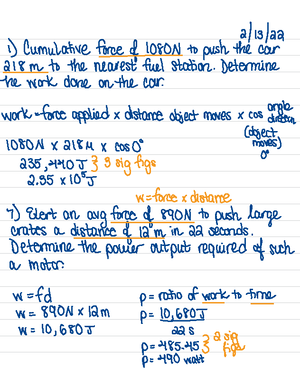 2/13/22
1) Cumulative force of 1080N to push the car
218 m to the nearest fuel station. Determine
the work done on the car.
work = force applied x distance object moves x cos angle direction
(object moves)
0°
1080N x 218M x cos0°
235,440J } 3 sig figs
2.35 x 10⁵J
w=force x distance
7) Exert an avg force of 890N to push large
crates a distance of 12 m in 22 seconds.
Determine the power output required of such
a motor:
w = fd
w = 890N x 12m
w = 10,680J
p = ratio of work to time
p = 10,680J
22s
p = 485.45 } 2 sig figs
p = 490 watt